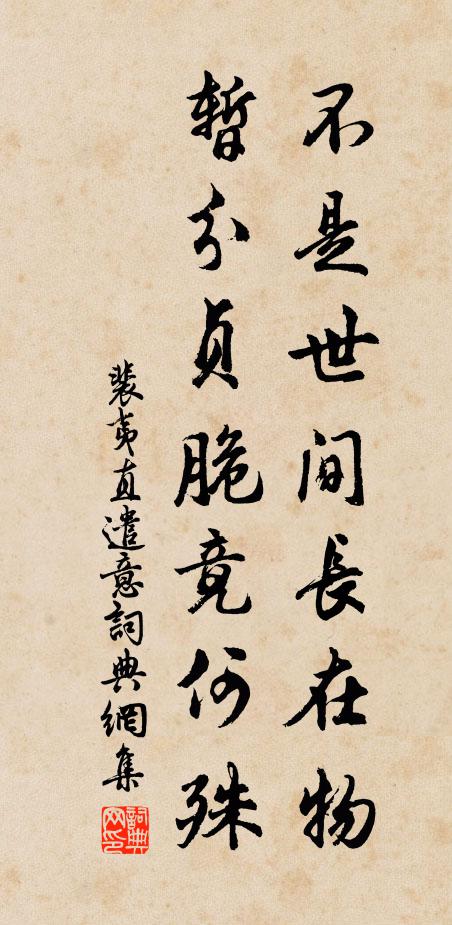 不是世間長在物
暫分貞脆竟何殊
裴夷直遣意詞典網集
詞典
网印